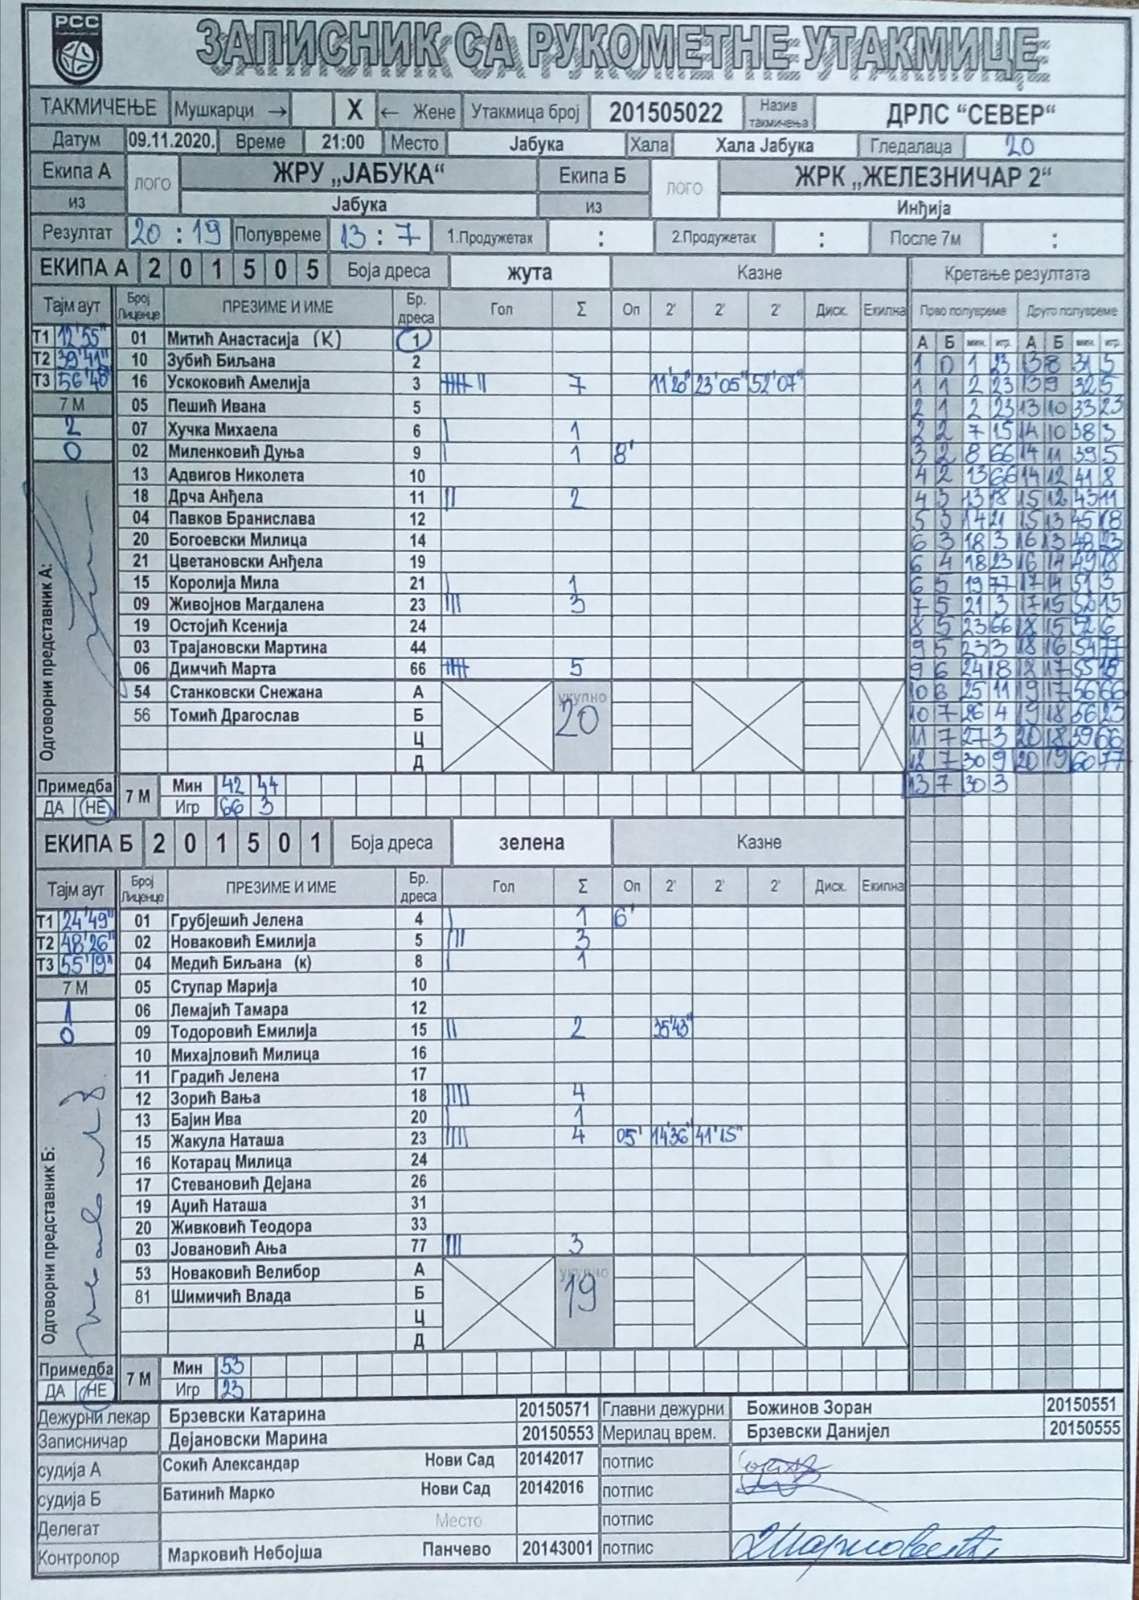 РСС
ЗАПИСНИК СА РУКОМЕТНЕ УТАКМИЦЕ
ТАКМИЧЕЊЕ Мушкарци → X ← Жене Утакмица број 201505022 Назив такмичења ДРЛС “СЕВЕР“
Датум 09.11.2020. Време 21:00 Место Јабука Хала Хала Јабука Гледалаца 20
Екипа А ЛОГО ЖРУ „ЈАБУКА“ Екипа Б ЛОГО ЖРК „ЖЕЛЕЗНИЧАР 2“
из Јабука из Инђија
Резултат 20 : 19 Полувреме 13 : 7 1.Продужетак : 2.Продужетак : После 7м :
ЕКИПА А 2 0 1 5 0 5 Боја дреса жута Казне Кретање резултата
Тајм аут Број Лиценце ПРЕЗИМЕ И ИМЕ Бр. дреса Гол Σ Оп 2' 2' 2' Диск. Екипна Прво полувреме Друго полувреме
А Б мин. игр. А Б мин. игр.
Т1 12'55" 01 Митић Анастасија (К) 1
Т2 39'41" 10 Зубић Биљана 2
Т3 56'48" 16 Ускоковић Амелија 3 7 11'20" 23'05" 52'07"
7 М 05 Пешић Ивана 5
2 07 Хучка Михаела 6 1
0 02 Миленковић Дуња 9 1 8'
13 Адвигов Николета 10
18 Дрча Анђела 11 2
04 Павков Бранислава 12
20 Богоевски Милица 14
21 Цветановски Анђела 19
15 Королија Мила 21 1
09 Живојнов Магдалена 23 3
19 Остојић Ксенија 24
03 Трајановски Мартина 44
06 Димчић Марта 66 5
54 Станковски Снежана А укупно 20
56 Томић Драгослав Б
Ц
Д
Одговорни представник А:
1 0 1 23 13 8 31 5
1 1 2 23 13 9 32 5
2 1 2 23 13 10 33 23
2 2 7 15 14 10 38 3
3 2 8 66 14 11 39 5
4 2 13 66 14 12 41 8
4 3 13 18 15 12 43 11
5 3 14 21 15 13 45 18
6 3 18 3 16 13 48 23
6 4 18 23 16 14 49 18
6 5 19 77 17 14 51 3
7 5 21 3 17 15 52 15
8 5 23 66 18 15 52 6
9 5 23 3 18 16 54 77
9 6 24 18 18 17 55 18
10 6 25 11 19 17 56 66
10 7 26 4 19 18 56 23
11 7 27 3 20 18 59 66
12 7 30 9 20 19 60 77
13 7 30 3
Примедба 7 М Мин 42 44
ДА НЕ Игр 66 3
ЕКИПА Б 2 0 1 5 0 1 Боја дреса зелена Казне
Тајм аут Број Лиценце ПРЕЗИМЕ И ИМЕ Бр. дреса Гол Σ Оп 2' 2' 2' Диск. Екипна
Т1 24'49" 01 Грубјешић Јелена 4 1 6'
Т2 48'26" 02 Новаковић Емилија 5 3
Т3 55'19" 04 Медић Биљана (к) 8 1
7 М 05 Ступар Марија 10
1 06 Лемајић Тамара 12
0 09 Тодоровић Емилија 15 2 35'43"
10 Михајловић Милица 16
11 Градић Јелена 17
12 Зорић Вања 18 4
13 Бајин Ива 20 1
15 Жакула Наташа 23 4 05' 14'36" 41'15"
16 Котарац Милица 24
17 Стевановић Дејана 26
19 Аџић Наташа 31
20 Живковић Теодора 33
03 Јовановић Ања 77 3
53 Новаковић Велибор А укупно 19
81 Шимичић Влада Б
Ц
Д
Одговорни представник Б:
Примедба 7 М Мин 53
ДА НЕ Игр 23
Дежурни лекар Брзевски Катарина 20150571 Главни дежурни Божинов Зоран 20150551
Записничар Дејановски Марина 20150553 Мерилац врем. Брзевски Данијел 20150555
судија А Сокић Александар Нови Сад 20142017 потпис
судија Б Батинић Марко Нови Сад 20142016 потпис
Делегат Место потпис
Контролор Марковић Небојша Панчево 20143001 потпис